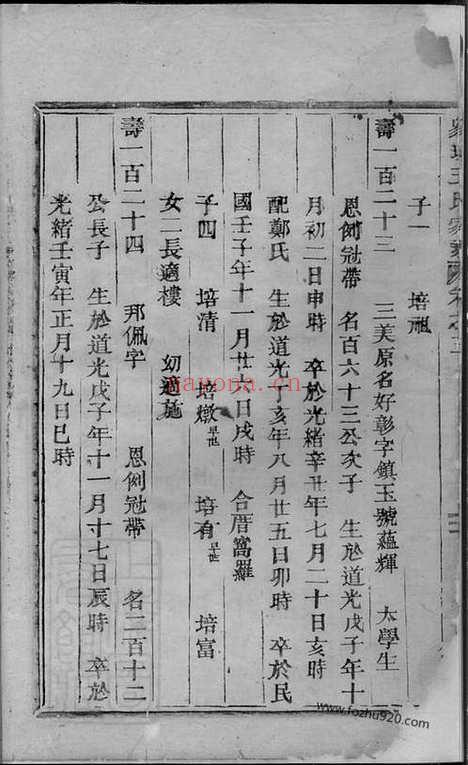 子一 培風
壽一百二十三 三美原名好彰字鎮玉號蘊輝 太學生
恩例冠帶 名百六十三公次子 生於道光戊子年十
月初二日申時 卒於光緒辛丑年七月二十日亥時
配鄭氏 生於道光丁亥年八月廿五日卯時 卒於民
國壬子年十一月廿六日戌時 合厝窩羅
子四 培清 培燉早世 培有早世 培富
女二長適樓 幼適施
壽一百二十四 邦佩字 恩例冠帶 名二百十二
公長子 生於道光戊子年十一月十七日辰時 卒於
光緒壬寅年正月十九日巳時
nayona.cn
www.fozhu920.com